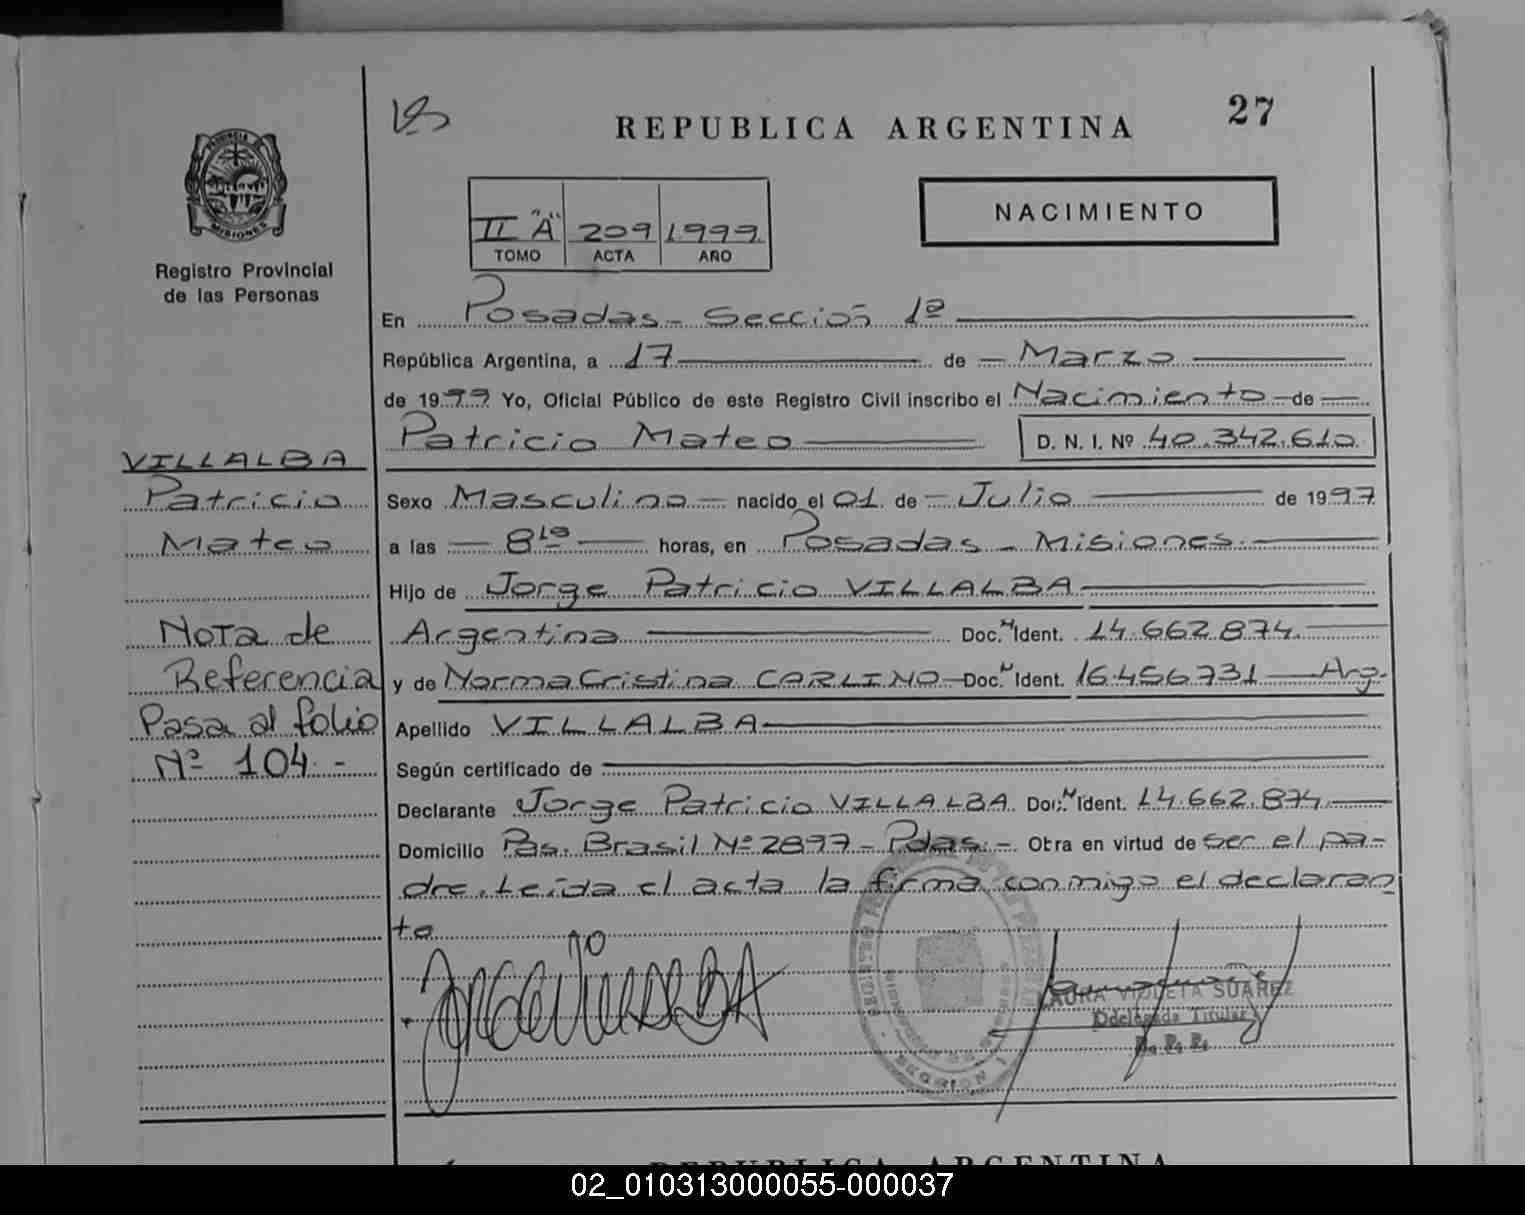 27
REPUBLICA ARGENTINA
PROVINCIA DE
MISIONES
Registro Provincial
de las Personas
NACIMIENTO
II "A" 209 1999
TOMO ACTA AÑO
En Posadas - Sección 1ª
República Argentina, a 17 de Marzo
de 1999 Yo, Oficial Público de este Registro Civil inscribo el Nacimiento de
Patricio Mateo D. N. I. Nº 40.342.610
VILLALBA
Patricio
Mateo
Nota de
Referencia
Pasa al folio
Nº 104 -
Sexo Masculino nacido el 01 de Julio de 1997
a las 8 horas, en Posadas - Misiones
Hijo de Jorge Patricio VILLALBA
Argentina Doc. Ident. 14.662.874
y de Norma Cristina CARLINO Doc. Ident. 16.456.731 Arg.
Apellido VILLALBA
Según certificado de
Declarante Jorge Patricio VILLALBA Doc. Ident. 14.662.874
Domicilio Pas. Brasil Nº 2897 - Pdas. - Obra en virtud de ser el pa-
dre. Leída el acta la firma conmigo el declaran
te
LAURA VIOLETA SUAREZ
Delegada Titular
R. P. P.
REPUBLICA ARGENTINA
02_010313000055-000037